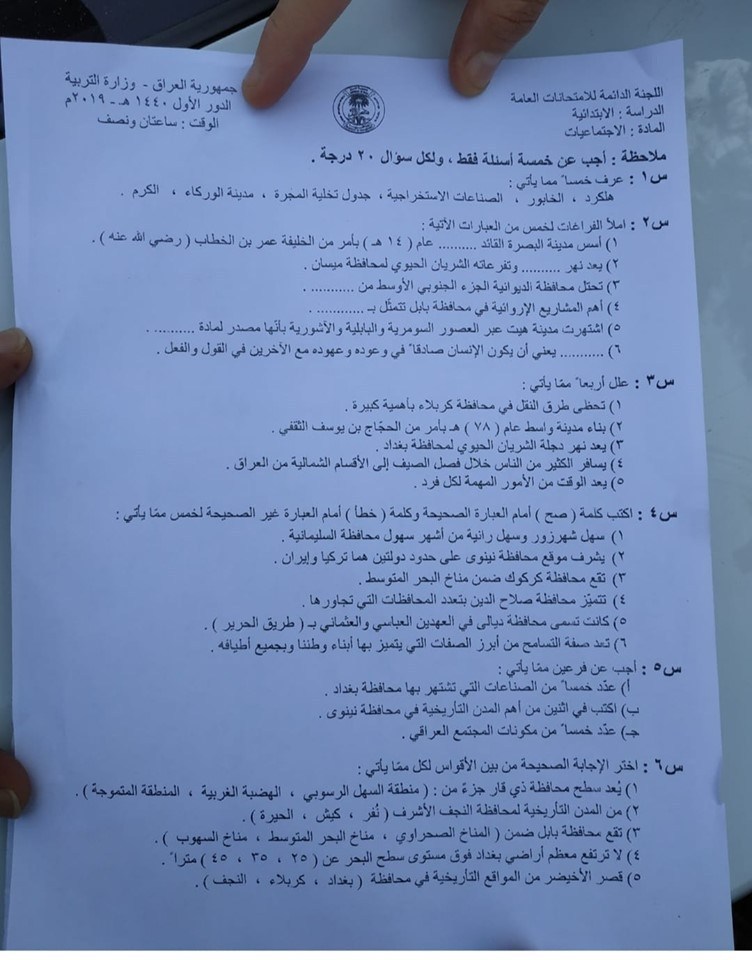 اللجنة الدائمة للامتحانات العامة
الدراسة : الابتدائية
المادة : الاجتماعيات
جمهورية العراق - وزارة التربية
الدور الأول ١٤٤٠ هـ - ٢٠١٩م
الوقت : ساعتان ونصف
ملاحظة : أجب عن خمسة أسئلة فقط ، ولكل سؤال ٢٠ درجة .
س١ : عرف خمساً مما يأتي :
هلكرد ، الخابور ، الصناعات الاستخراجية ، جدول تخلية المجرة ، مدينة الوركاء ، الكرم .
س٢ : املأ الفراغات لخمس من العبارات الآتية :
١) أسس مدينة البصرة القائد .......... عام ( ١٤ هـ ) بأمر من الخليفة عمر بن الخطاب ( رضي الله عنه ) .
٢) يعد نهر .......... وتفرعاته الشريان الحيوي لمحافظة ميسان .
٣) تحتل محافظة الديوانية الجزء الجنوبي الأوسط من ........... .
٤) أهم المشاريع الإروائية في محافظة بابل تتمثل بـ ............ .
٥) اشتهرت مدينة هيت عبر العصور السومرية والبابلية والآشورية بأنها مصدر لمادة .......... .
٦) ........... يعني أن يكون الإنسان صادقاً في وعوده وعهوده مع الآخرين في القول والفعل .
س٣ : علل أربعاً مما يأتي :
١) تحظى طرق النقل في محافظة كربلاء بأهمية كبيرة .
٢) بناء مدينة واسط عام ( ٧٨ ) هـ بأمر من الحجاج بن يوسف الثقفي .
٣) يعد نهر دجلة الشريان الحيوي لمحافظة بغداد .
٤) يسافر الكثير من الناس خلال فصل الصيف إلى الأقسام الشمالية من العراق .
٥) يعد الوقت من الأمور المهمة لكل فرد .
س٤ : اكتب كلمة ( صح ) أمام العبارة الصحيحة وكلمة ( خطأ ) أمام العبارة غير الصحيحة لخمس مما يأتي :
١) سهل شهرزور وسهل رانية من أشهر سهول محافظة السليمانية .
٢) يشرف موقع محافظة نينوى على حدود دولتين هما تركيا وإيران .
٣) تقع محافظة كركوك ضمن مناخ البحر المتوسط .
٤) تتميز محافظة صلاح الدين بتعدد المحافظات التي تجاورها .
٥) كانت تسمى محافظة ديالى في العهدين العباسي والعثماني بـ ( طريق الحرير ) .
٦) تعد صفة التسامح من أبرز الصفات التي يتميز بها أبناء وطننا وبجميع أطيافه .
س٥ : أجب عن فرعين مما يأتي :
أ) عدد خمساً من الصناعات التي تشتهر بها محافظة بغداد .
ب) اكتب في اثنين من أهم المدن التأريخية في محافظة نينوى .
جـ) عدد خمساً من مكونات المجتمع العراقي .
س٦ : اختر الإجابة الصحيحة من بين الأقواس لكل مما يأتي :
١) يُعد سطح محافظة ذي قار جزءً من : ( منطقة السهل الرسوبي ، الهضبة الغربية ، المنطقة المتموجة ) .
٢) من المدن التأريخية لمحافظة النجف الأشرف ( نُفر ، كيش ، الحيرة ) .
٣) تقع محافظة بابل ضمن ( المناخ الصحراوي ، مناخ البحر المتوسط ، مناخ السهوب ) .
٤) لا ترتفع معظم أراضي بغداد فوق مستوى سطح البحر عن ( ٢٥ ، ٣٥ ، ٤٥ ) متراً .
٥) قصر الأخيضر من المواقع التأريخية في محافظة ( بغداد ، كربلاء ، النجف ) .